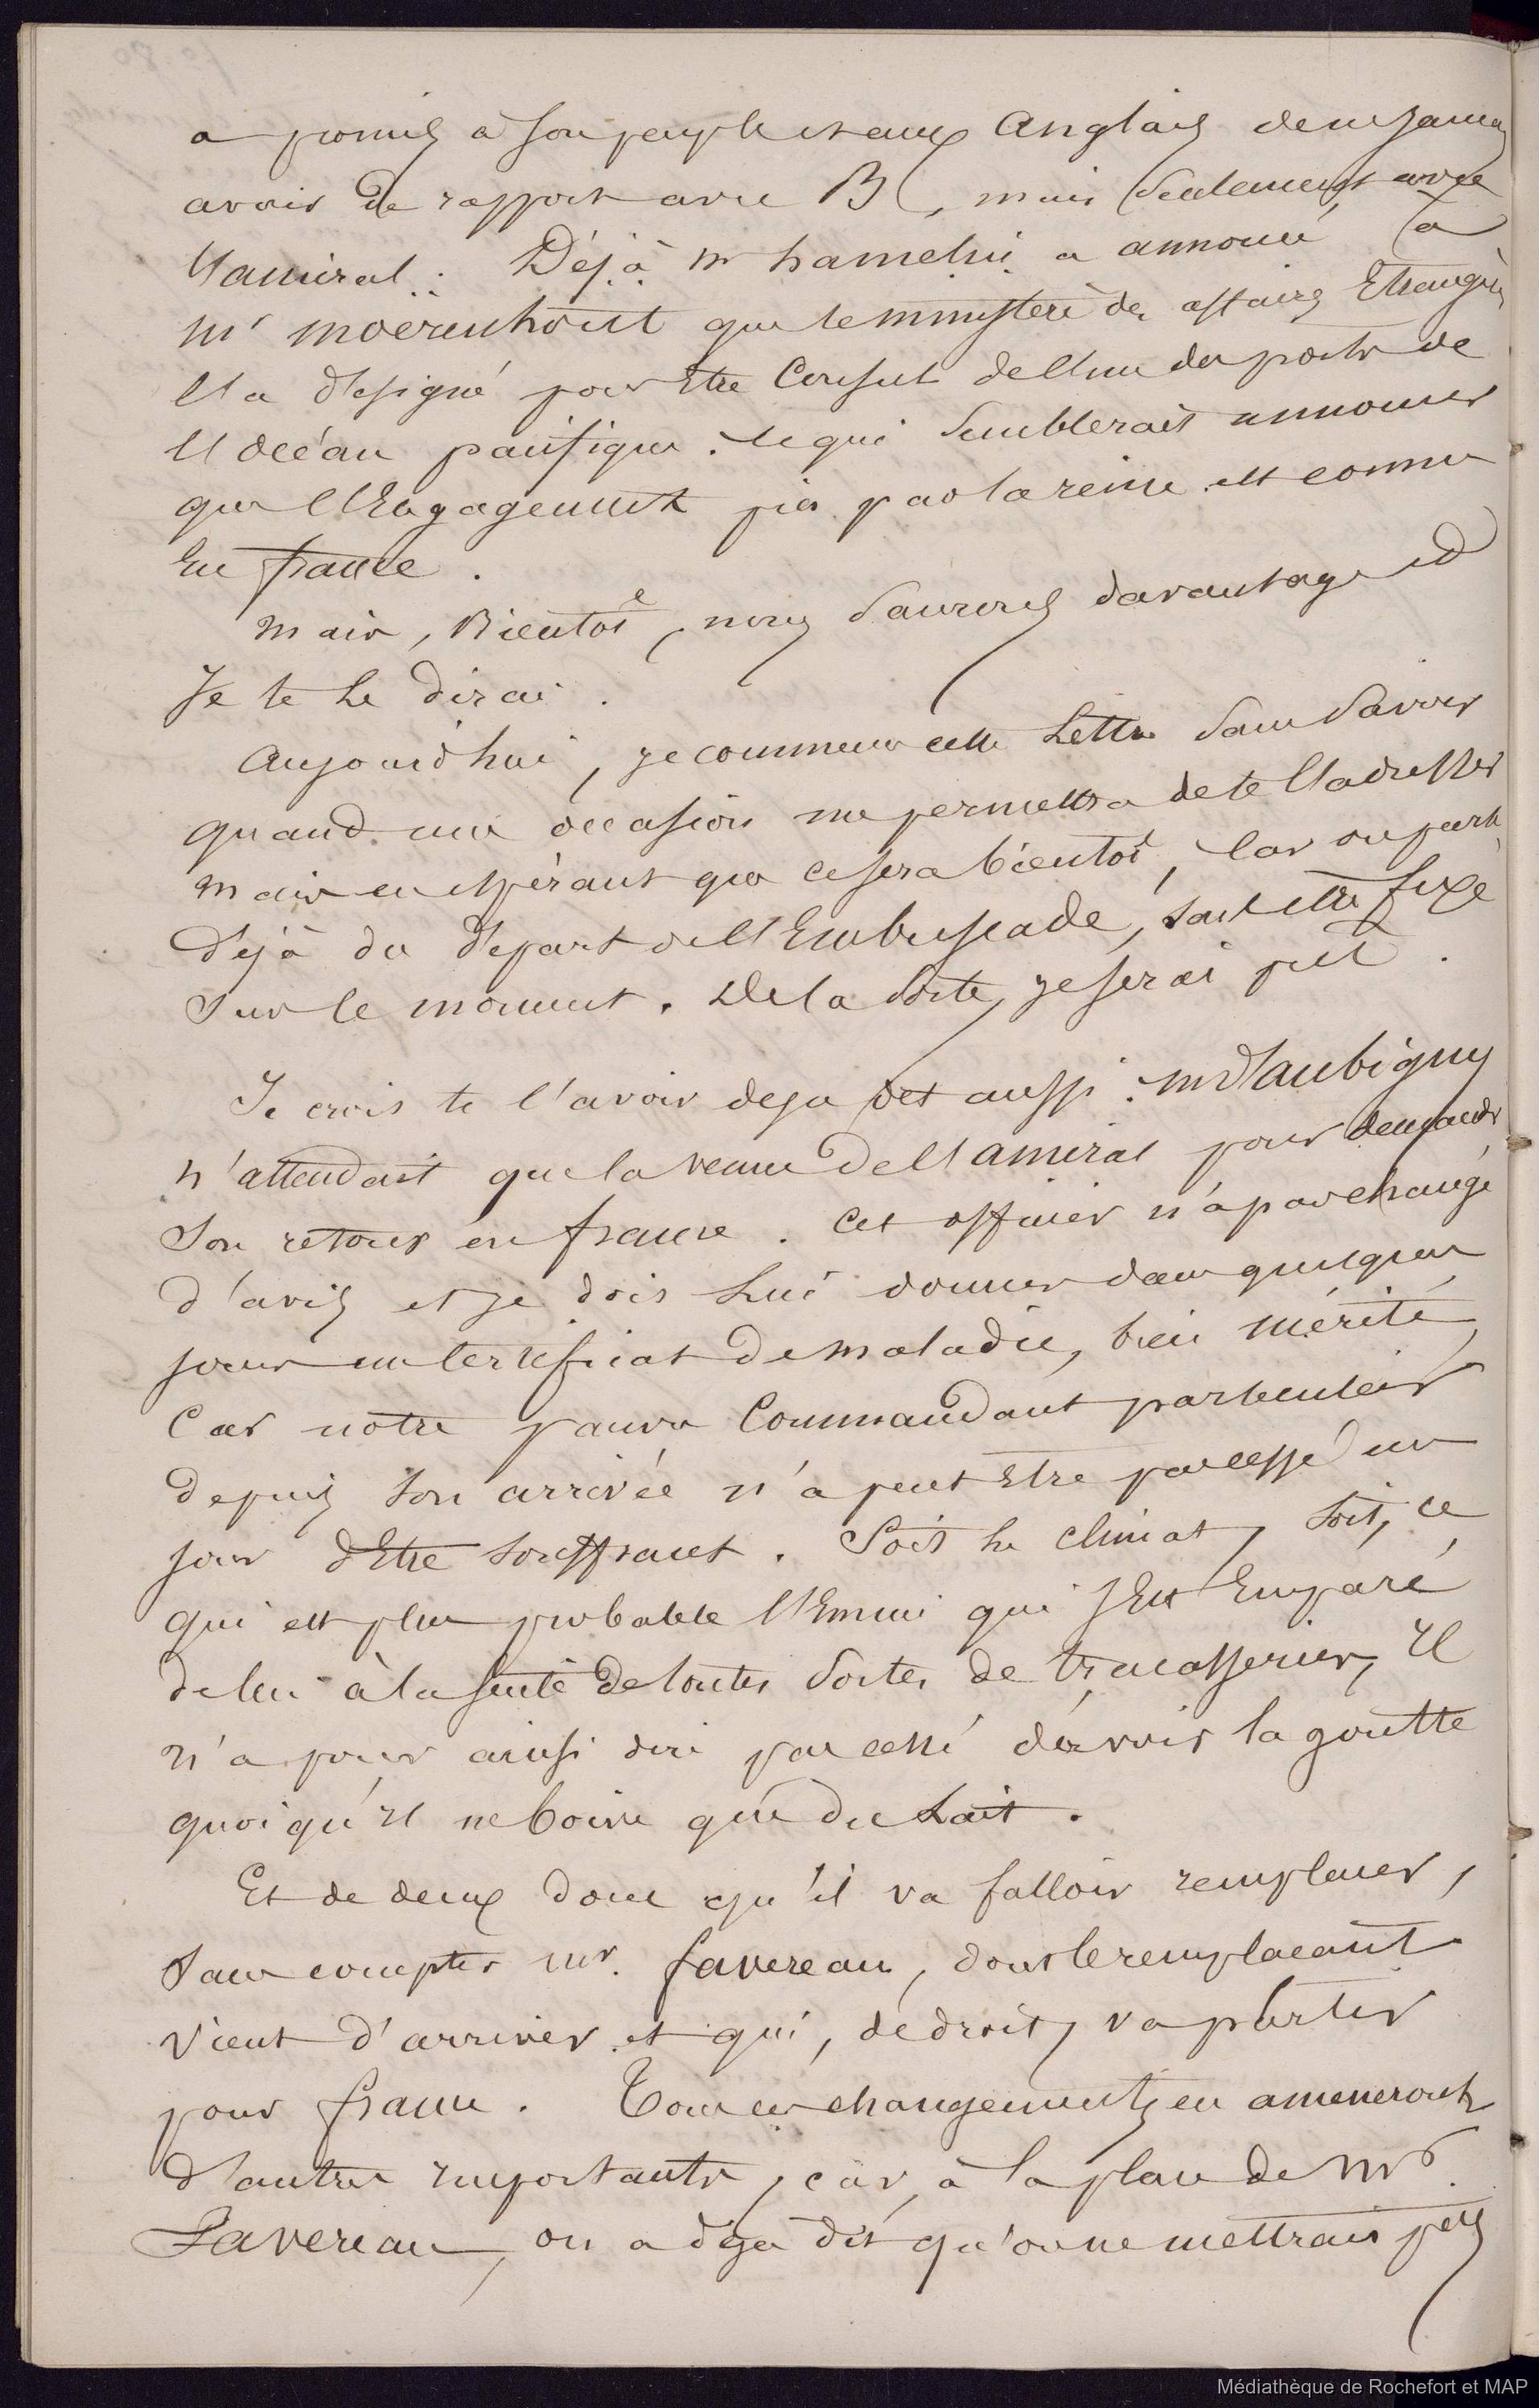 a promis à son peuple et aux Anglais de ne jamais
avoir de rapport avec B, mais seulement avec
l'amiral. Déjà Mr hamelin a annoncé à
Mr moerenhout que le ministère des affaires Etrangères
l'a désigné pour Etre Consul de l'un des ports de
l'océan pacifique. Ce qui semblerait annoncer
que l'Engagement pris par la reine est connu
En france.
Mais, Bientôt, nous saurons davantage et
Je te le dirai.
Aujourd'hui, je commence cette Lettre sans savoir
quand une occasion me permettra de te l'adresser
mais en espérant que ce sera bientôt, car on parle
déjà du départ de l'Embuscade, sans être fixé
sur le moment. De la sorte, je serai prêt.
Je crois te l'avoir deja dit aussi. Mr d'aubigny
n'attendait que la venue de l'amiral pour demander
son retour en france. Cet officier n'a pas changé
d'avis et je dois lui donner dans quelques
jours un certificat de maladie, bien mérité,
Car notre pauvre Commandant particulier
depuis son arrivée n'a peut Etre pas cessé un
jour d'Etre souffrant. Soit le climat, soit, ce
qui est plus probable l'Ennui qui s'Est Emparé
de lui à la suite de toutes sortes de tracasseries, Il
n'a pour ainsi dire pas cessé d'avoir la goutte
quoiqu'Il ne boive que du Lait.
Et de deux donc qu'il va falloir remplacer,
sans compter Mr. favereau, dont le remplaçant
vient d'arriver et qui, de droit, va partir
pour france. Tous ces changements en ameneront
d'autres importants, car, à la place de Mr
Favereau, on a déja dit qu'on ne mettrait pas
Médiathèque de Rochefort et MAP